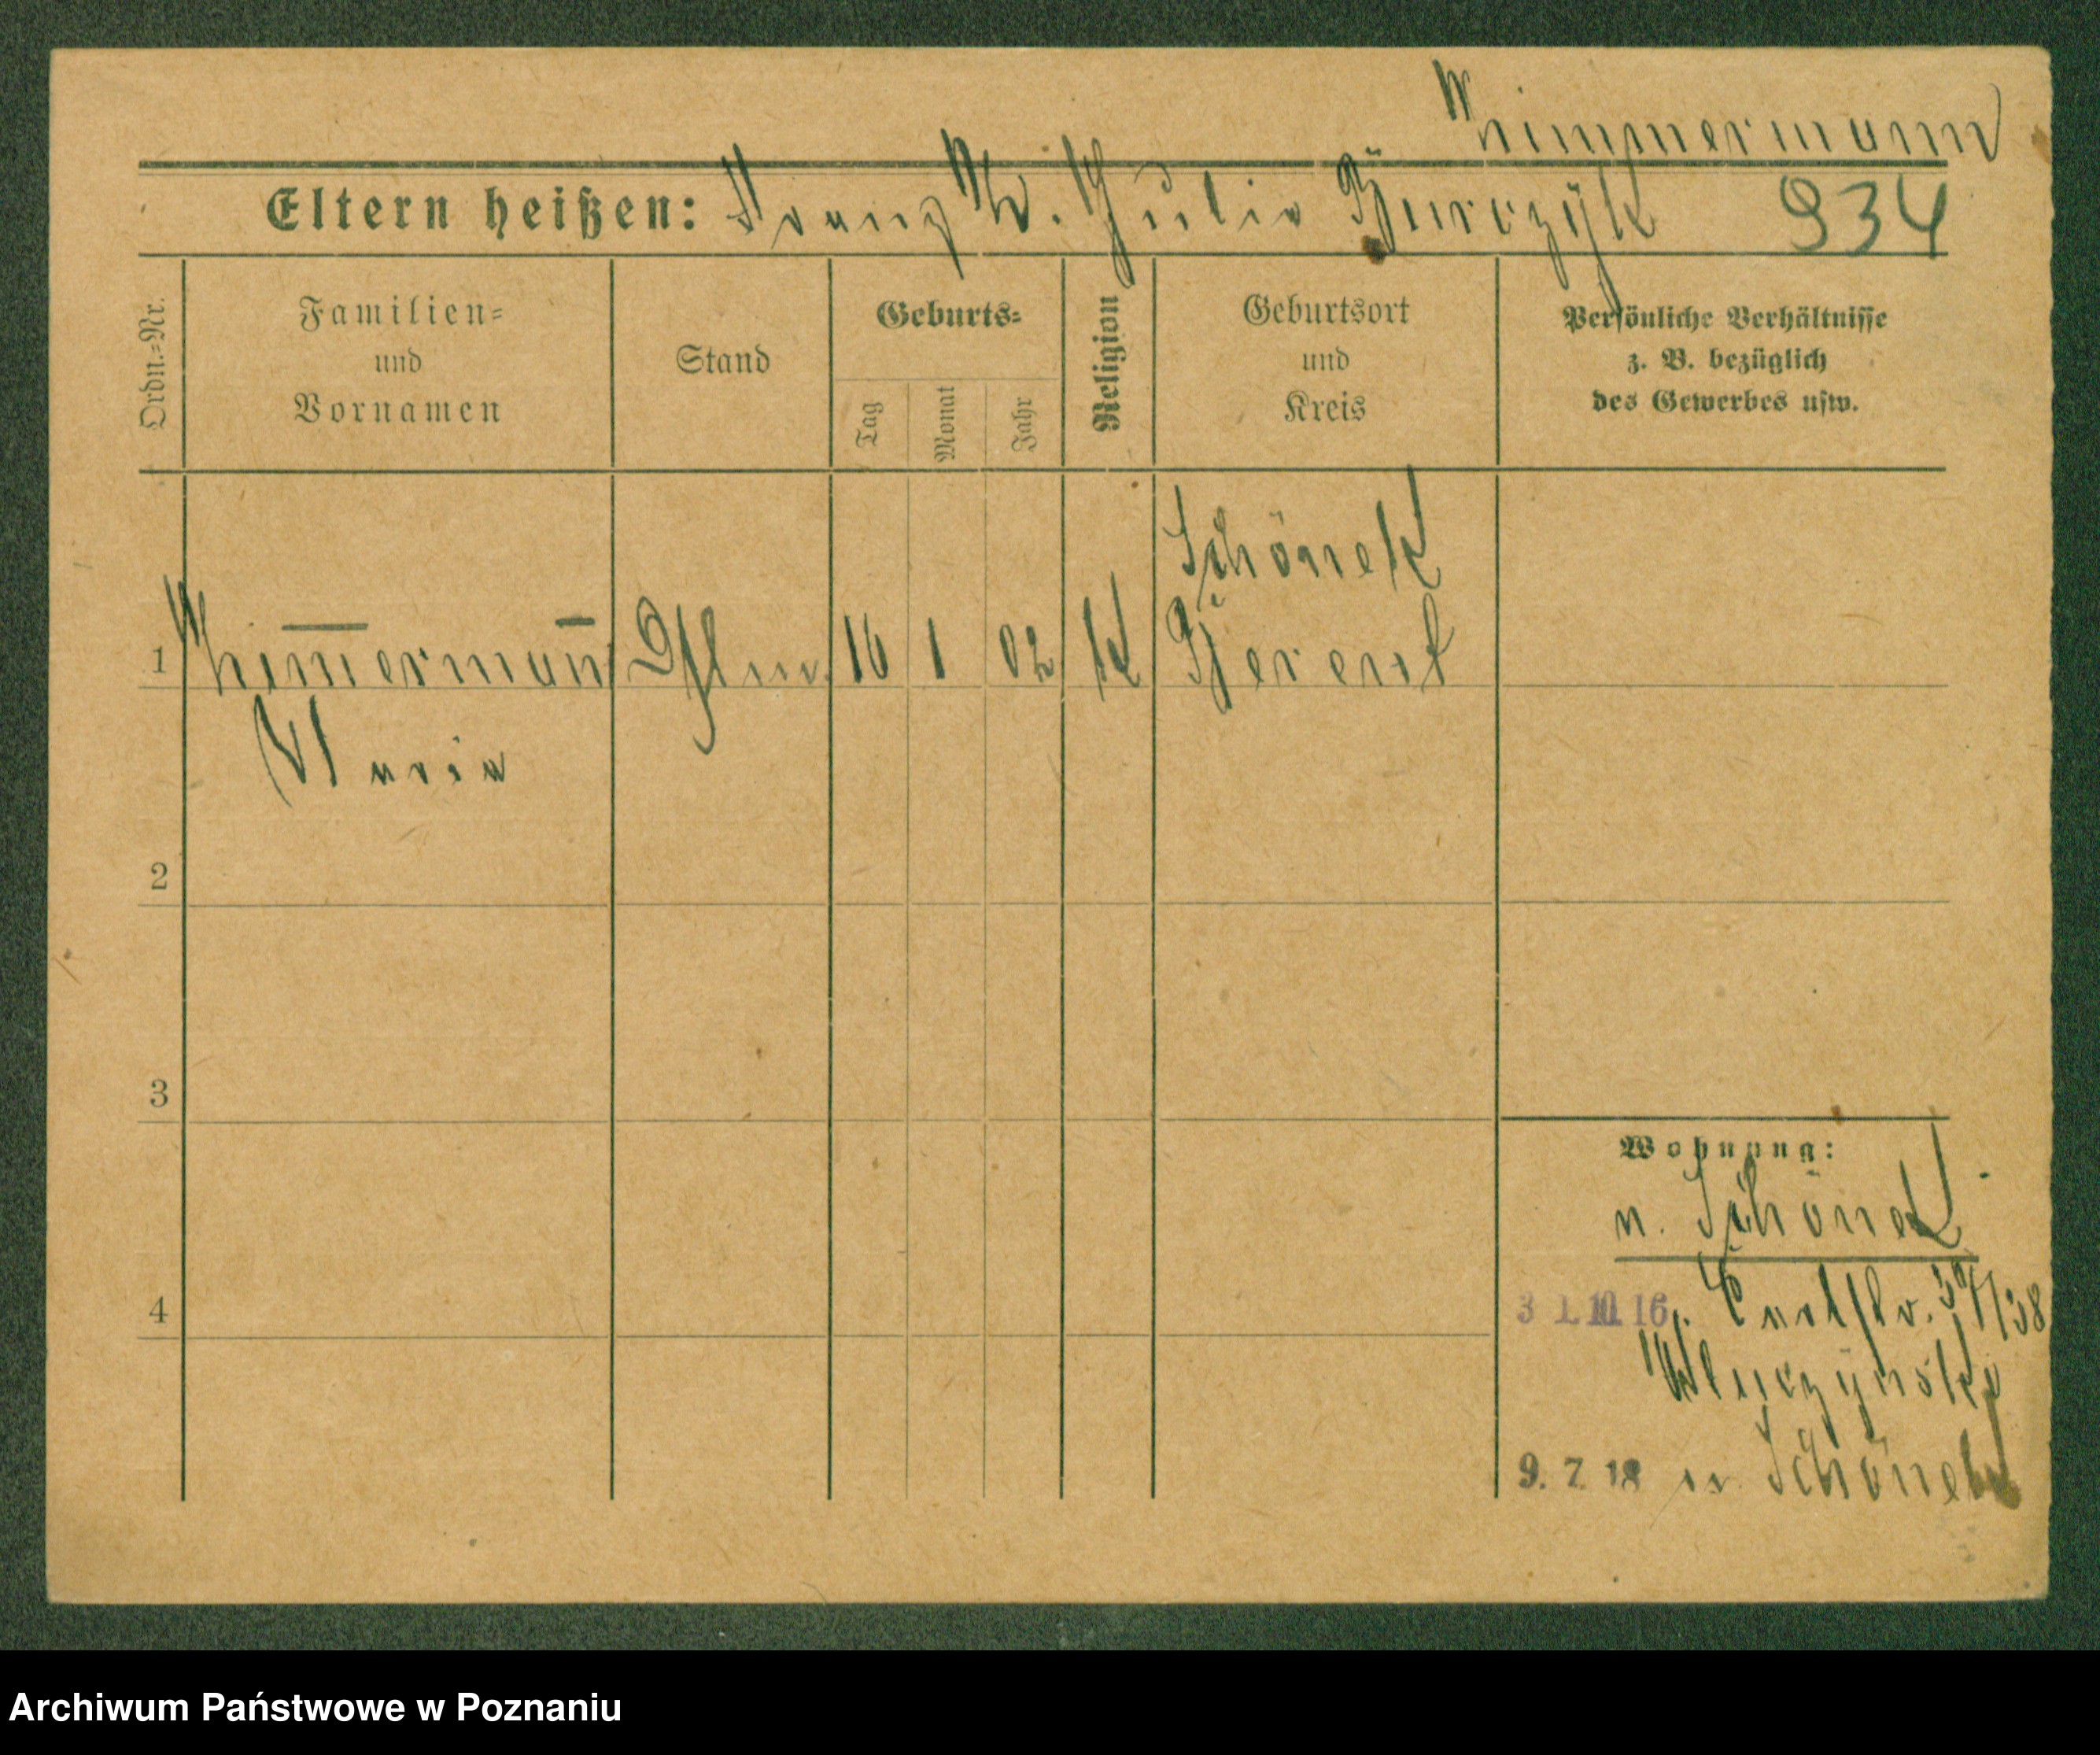 Zimmermann
Eltern heißen: Franz u. Julie Burczyk 934
Ordn.-Nr.
Familien-
und
Vornamen
Stand
Geburts-
Tag
Monat
Jahr
Religion
Geburtsort
und
Kreis
Persönliche Verhältnisse
z. B. bezüglich
des Gewerbes usw.
Schönek
1 Zimmermann 16 1 02 K Berent
Maria
2
3
4
Wohnung:
n. Schönek
31.10.16. /38
9. 7. 18 n. Schönek
Archiwum Państwowe w Poznaniu